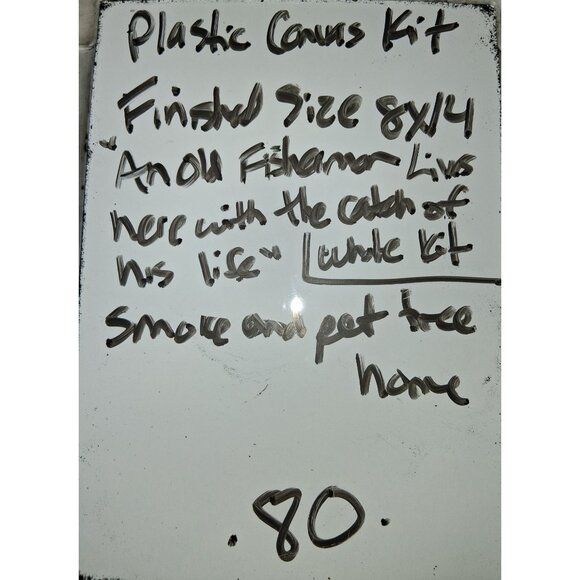 Plastic Canvas Kit
Finished Size 8x14
"An Old Fisherman Livs
here with the catch of
his life" whole kit
smoke and pet free
home
.80.